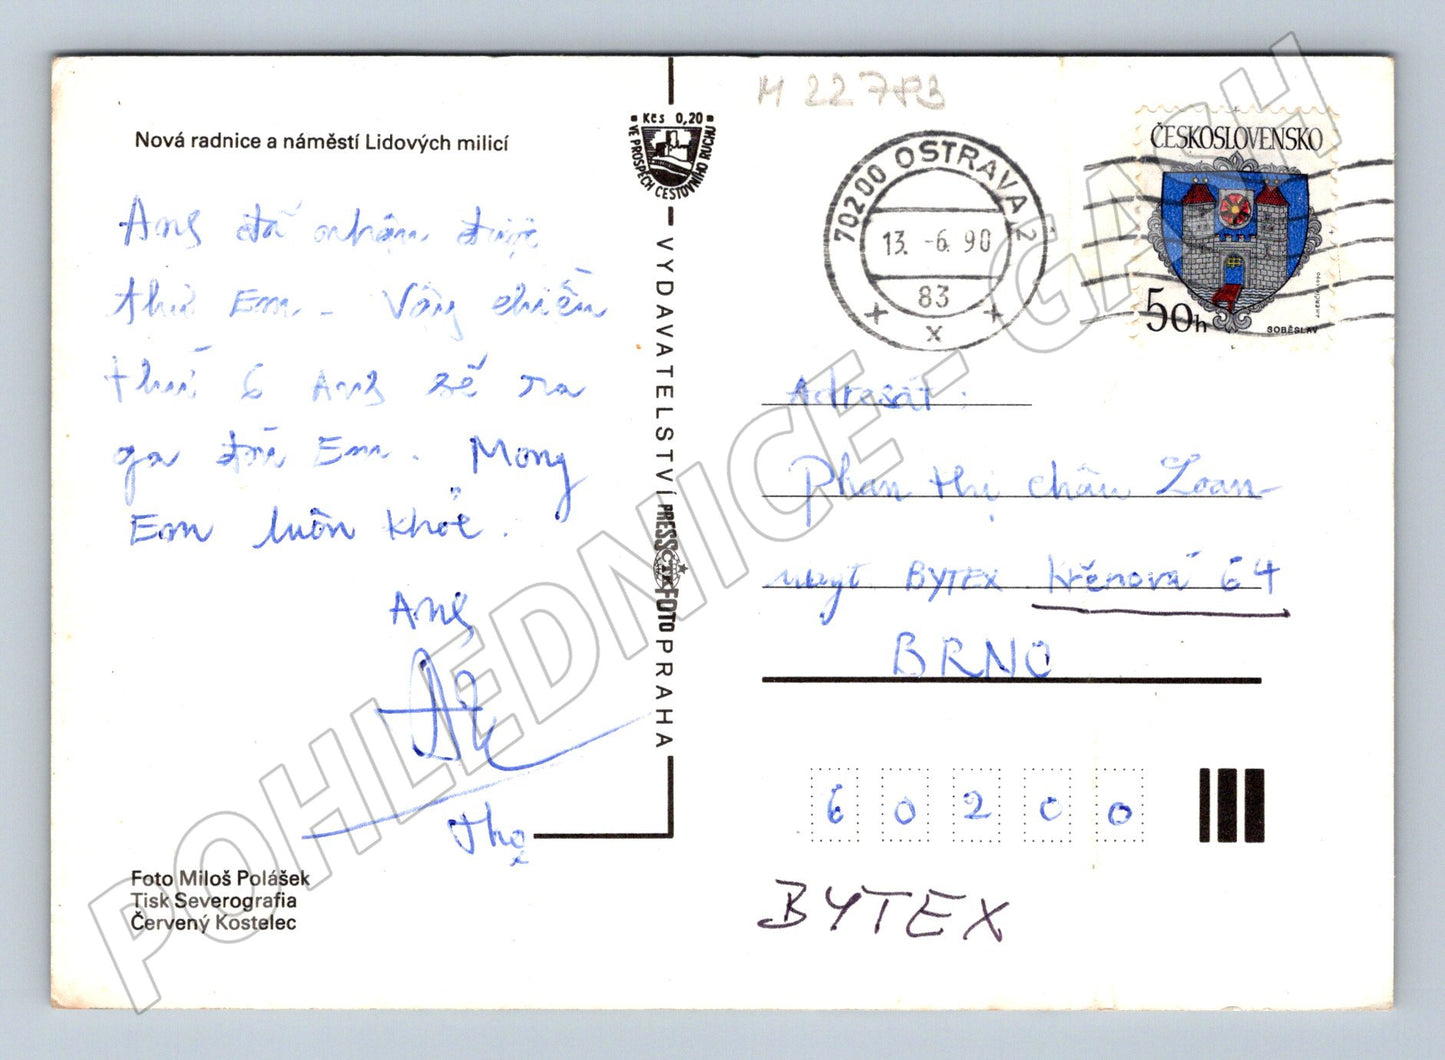 Nová radnice a náměstí Lidových milicí
Anh đã nhận được
thư Em. Vậy chiều
thứ 6 Anh sẽ ra
ga đón Em. Mong
Em luôn khỏe.
Anh
Thọ
Foto Miloš Polášek
Tisk Severografia
Červený Kostelec
Kčs 0,20
VE PROSPĚCH CESTOVNÍHO RUCHU
VYDAVATELSTVÍ PRESSFOTO PRAHA
ČTK
M 22783
70200 OSTRAVA 2
13. -6. 90
83
x
ČESKOSLOVENSKO
50h
SOBĚSLAV
Adresát:
Phan thị châu Loan
ubyt BYTEX Křenová 64
BRNO
60200
BYTEX
POHLEDNICE - GASH